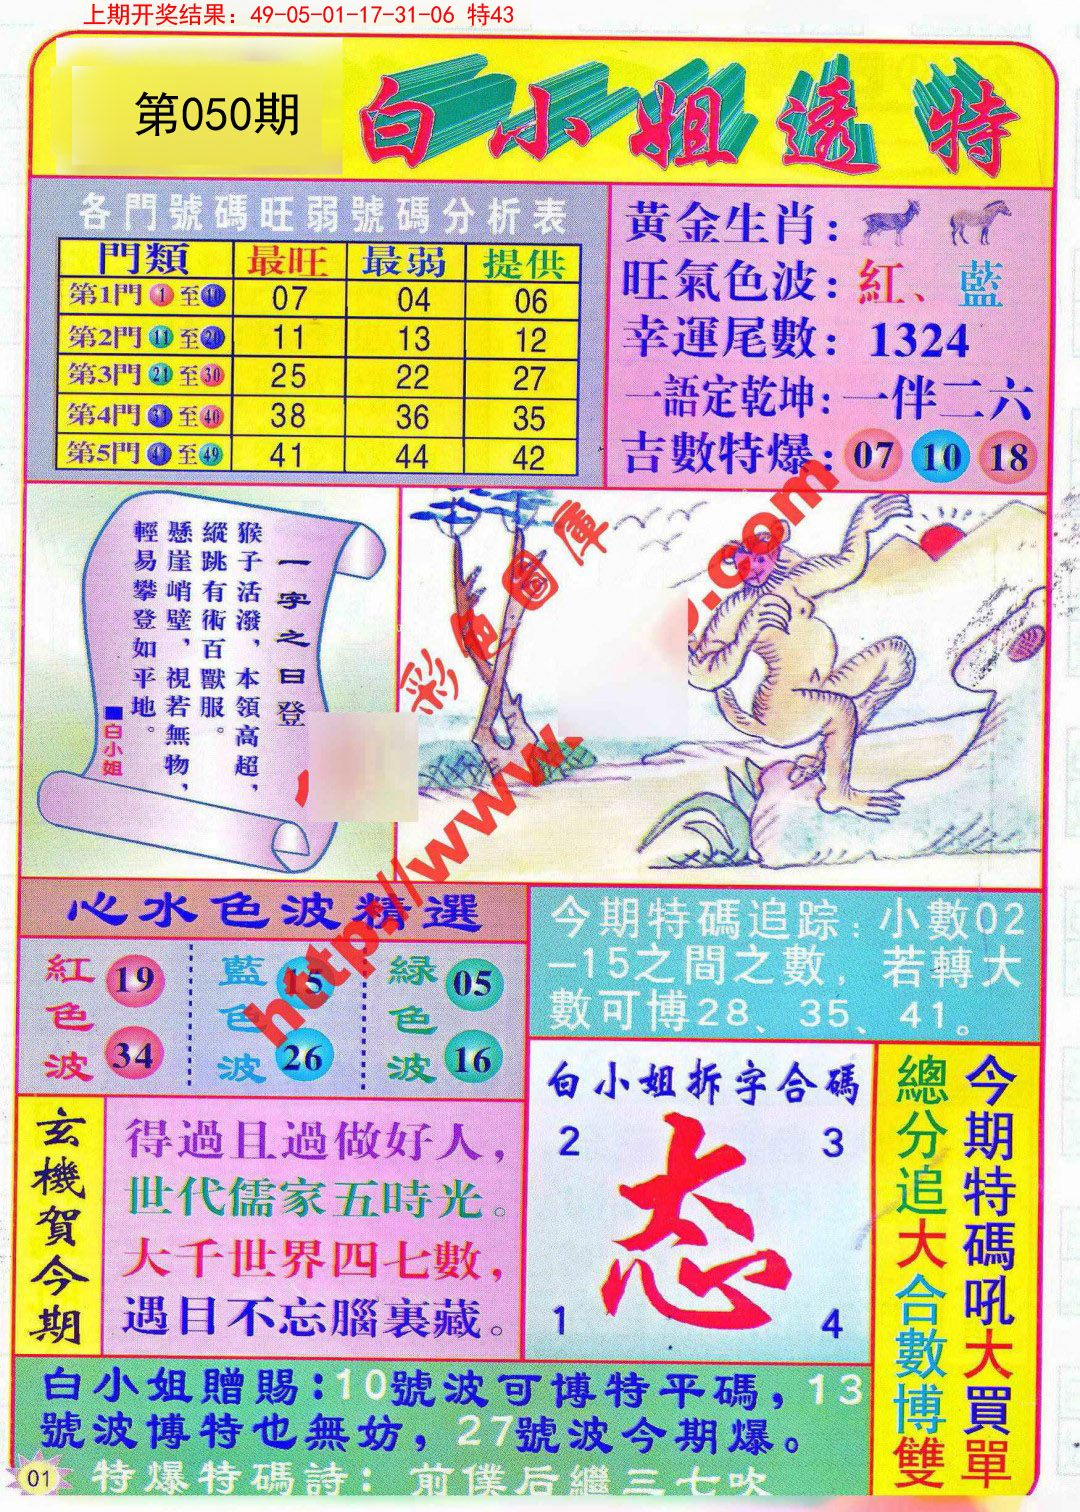 上期开奖结果：49-05-01-17-31-06 特43
第050期
白小姐透特
各門號碼旺弱號碼分析表
門類 最旺 最弱 提供
第1門 1 至 10 07 04 06
第2門 11 至 20 11 13 12
第3門 21 至 30 25 22 27
第4門 31 至 40 38 36 35
第5門 41 至 49 41 44 42
黃金生肖：
旺氣色波：紅、藍
幸運尾數：1324
一語定乾坤：一伴二六
吉數特爆：07 10 18
一字之曰登
猴子活潑，本領高超，
縱跳有術百獸服。
懸崖峭壁，視若無物，
輕易攀登如平地。
■白小姐
彩色圖庫
http://www.
.com
心水色波精選
紅色波 19 34
藍色波 15 26
綠色波 05 16
今期特碼追踪：小數02
-15之間之數，若轉大
數可博28、35、41。
玄機賀今期
得過且過做好人，
世代儒家五時光。
大千世界四七數，
遇目不忘腦裏藏。
白小姐拆字合碼
2 3
态
1 4
今期特碼吼大買單
總分追大合數博雙
白小姐贈賜：10號波可博特平碼，13
號波博特也無妨，27號波今期爆。
特爆特碼詩：前僕后繼三七吹
01